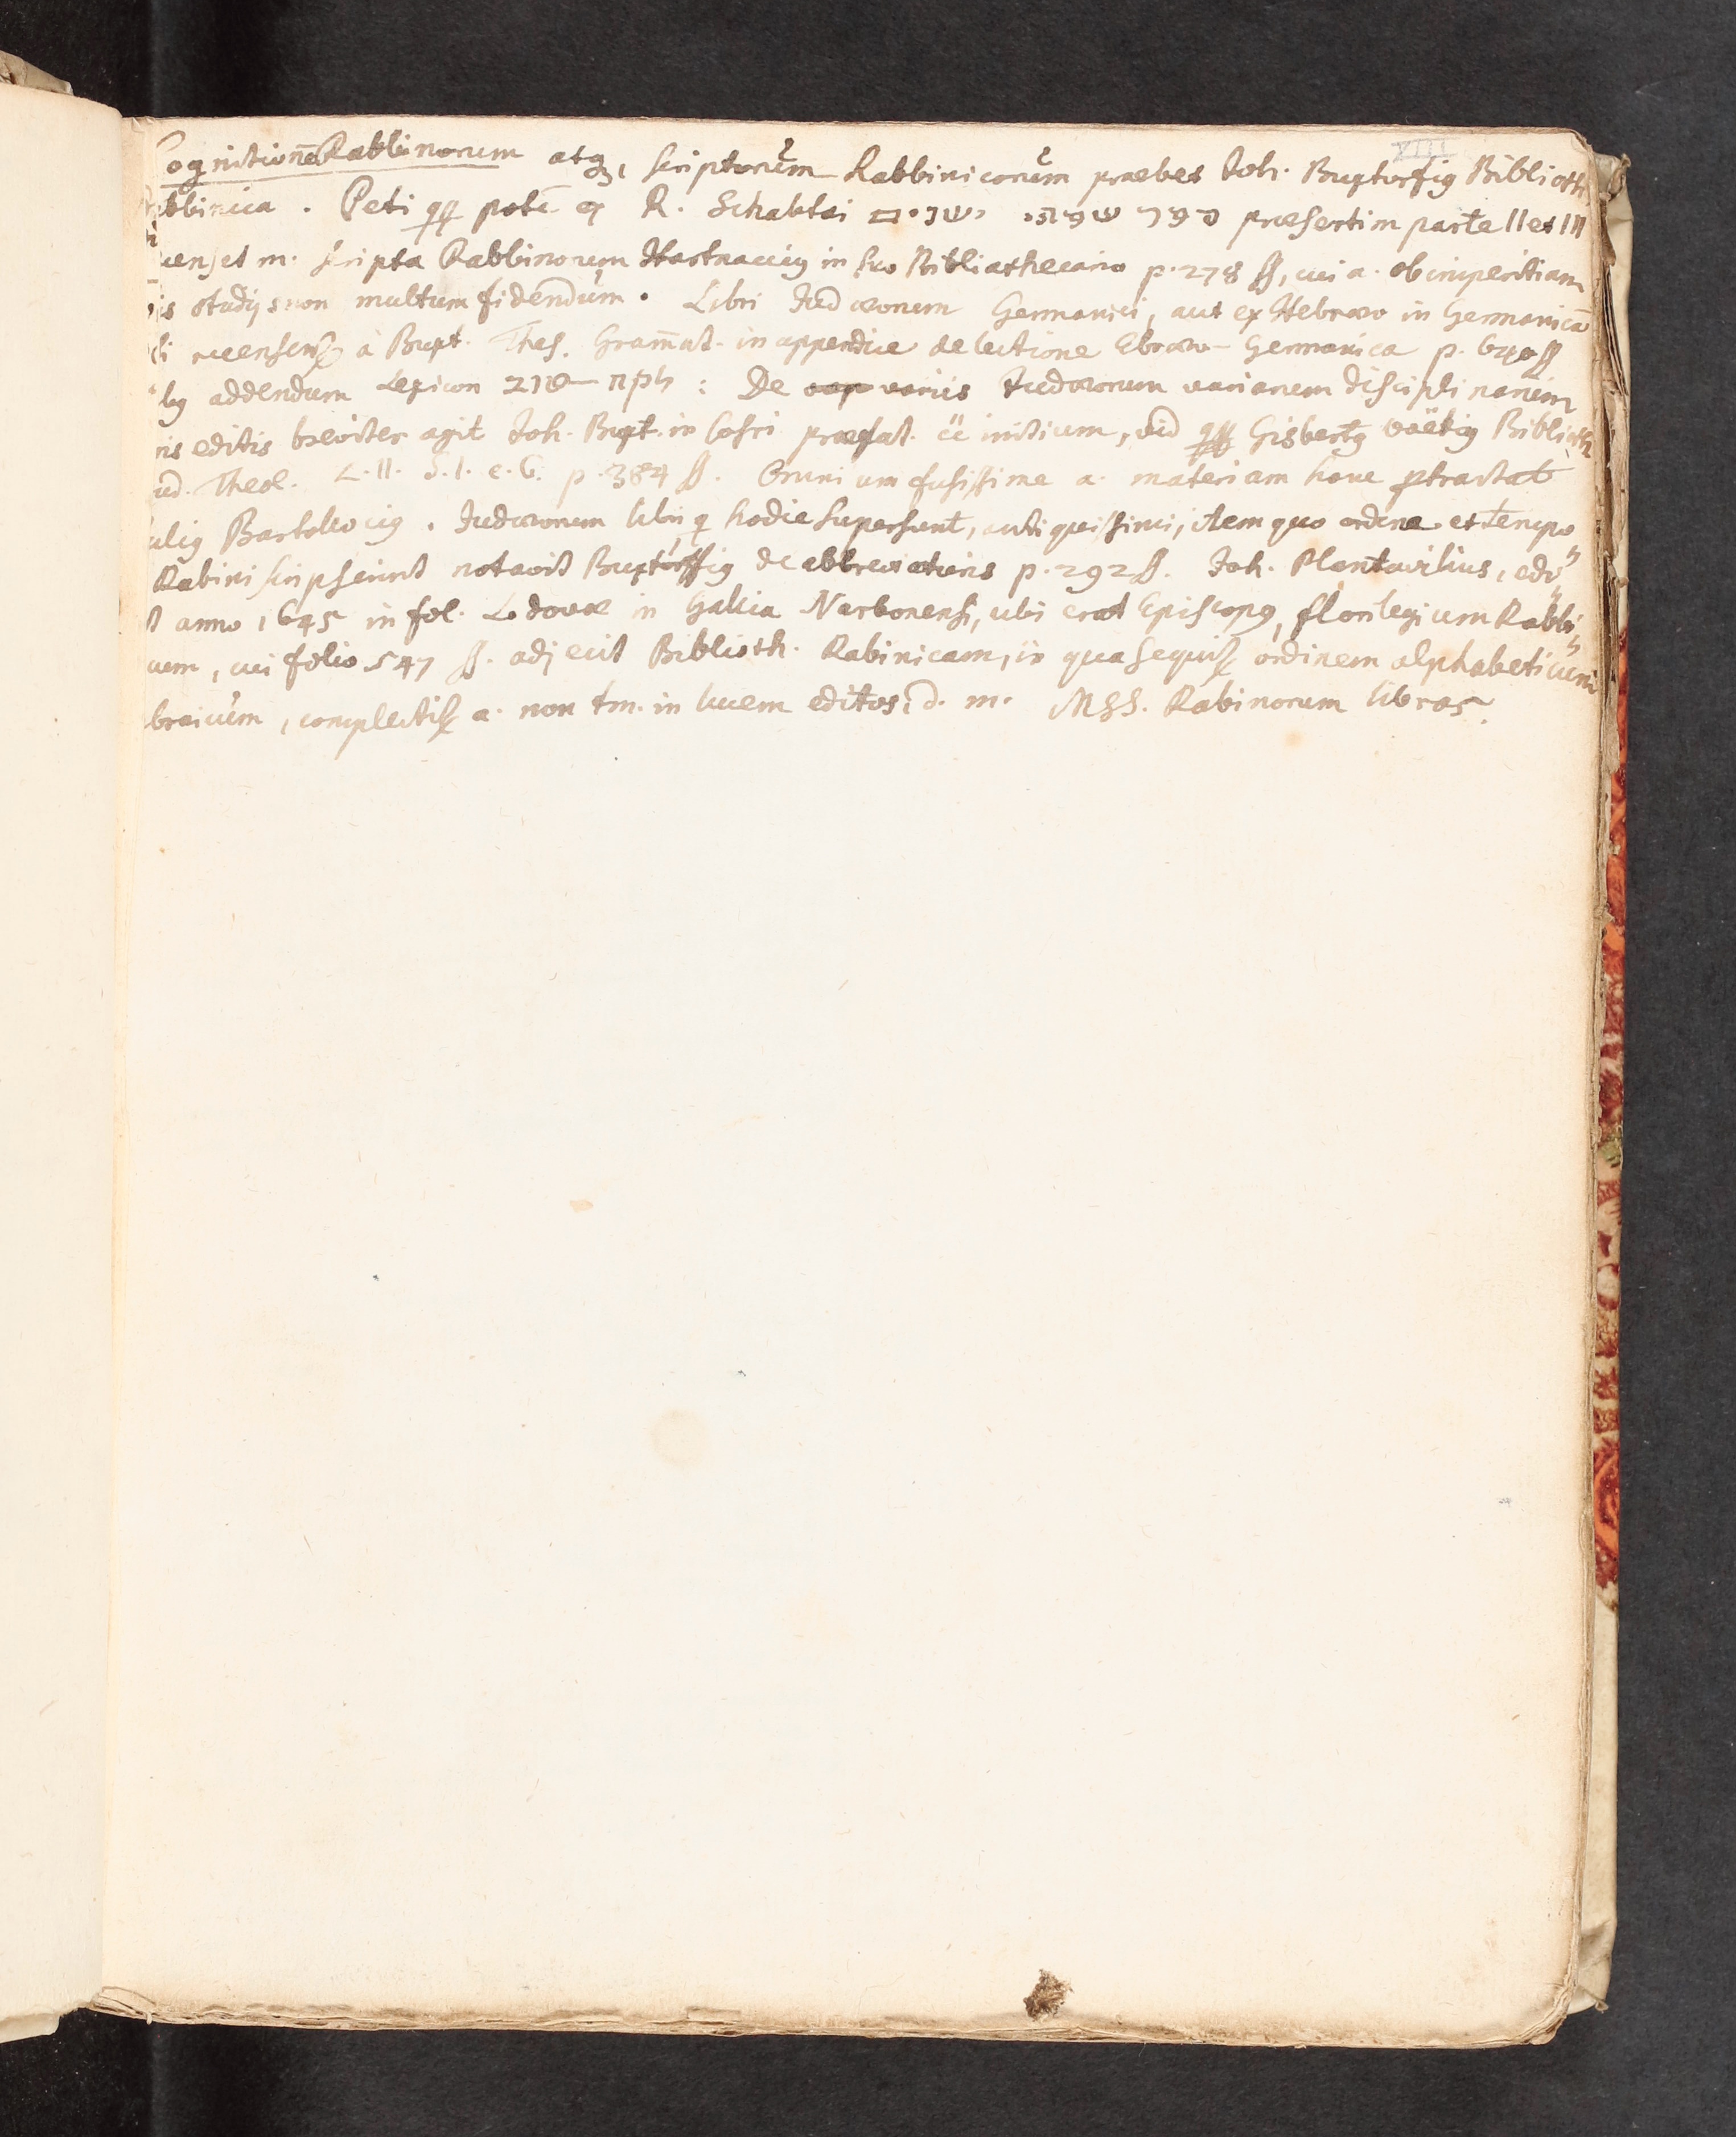 XIII
Cognitionē Rabbinorum atq3, scriptorum Rabbinicorum praebet Joh. Buxtorfig Biblioth
Rabbinica. Peti qq potē ex R. Schabtai ספר שפתי ישנים praesertim parte II et III
censet m. scripta Rabbinorum Hartnaccig in suo Bibliothecario p. 278 ff, cui a. ob imperitiam
is studijs non multum fidendum. Libri Judaeorum Germanici, aut ex Hebraeo in Germanicā
si recensenr à Buxt. Thes. Gram̄at. in appendice de lectione Ebraeo-Germanica p. ff
by addendum Lexicon : De variis Judaeorum variarum disciplinarum
ris editis breviter agit Joh. Buxt. in Cosri praefat. initium, vid qq Gisbertg Voëtig Biblioth
ud. Theol. L. II. S. 1. c. 6. p. 384 ff. Omnium fusissime a. materiam hanc ptractat
ulig Bartoloccig. Judaeorum libri, q hodie supersunt, antiquissimi, item quo ordine et tempo
Rabini scripserint notavit Buxtorffig de abbreviaturis p. 292 ff. Joh. Plantavitius, edi
t anno 1645 in fol. Lodovae in Gallia Narbonensi, ubi erat Episcopg, florilegium Rabbi
cum, cui folio 547 ff. adjecit Biblioth. Rabinicam, in qua sequir ordinem alphabeticum
braicum, complectir a. non tm. in lucem editos, d. m. MSS. Rabinorum libros.